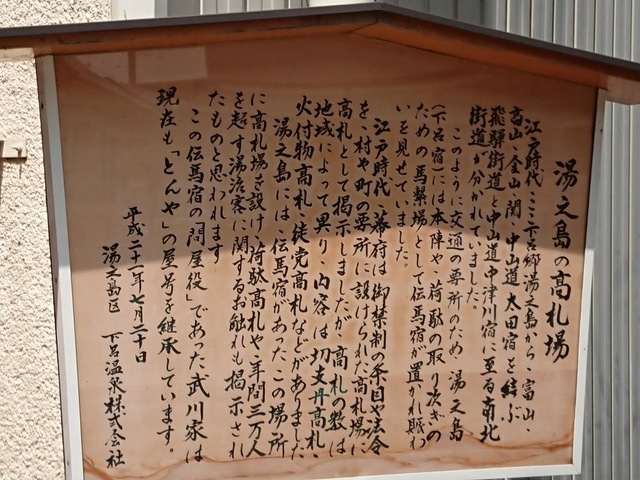 湯之島の高札場
江戸時代、ここ下呂郷湯之島から、富山、
高山、金山、関、中山道太田宿を結ぶ
飛騨街道と中山道中津川宿に至る南北
街道が分かれていました。
このように交通の要所のため、湯之島
(下呂宿)には本陣や、荷駄の取り次ぎの
ための馬繋場として伝馬宿が置かれ賑わ
いを見せていました。
江戸時代、幕府は御禁制の条目や法令
を、村や町の要所に設けられた高札場に
高札として掲示しましたが、高札の数は
地域によって異り、内容は、切支丹高札、
火付物高札、徒党高札などがありました
湯之島には、伝馬宿があったこの場所
に高札場を設け、荷駄高札や、年間三万人
を超す湯治客に関するお触れも掲示され
たものと思われます
この伝馬宿の「問屋役」であった武川家は
現在も「とんや」の屋号を継承しています。
平成二十一年七月二十日
湯之島区 下呂温泉株式会社